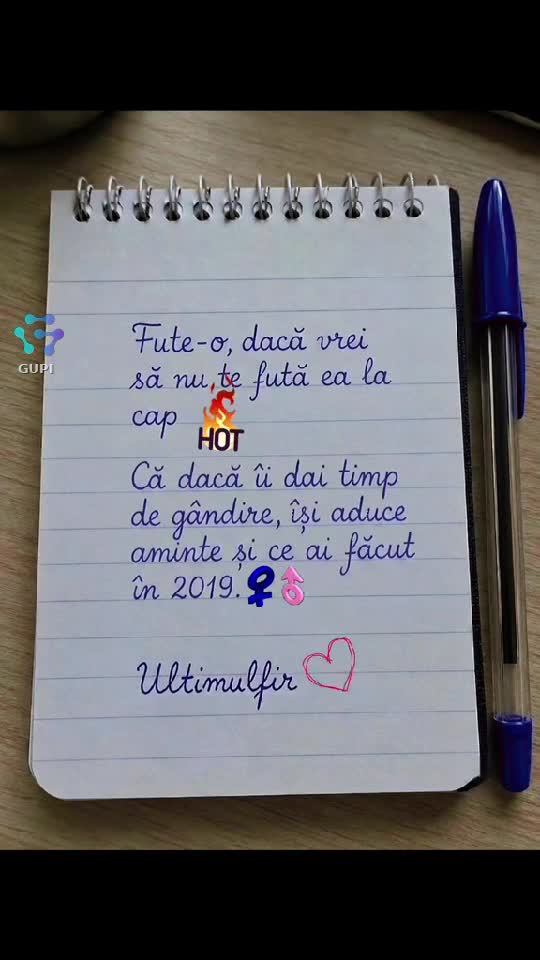 Fute-o, dacă vrei
să nu te fută ea la
cap
HOT
Că dacă îi dai timp
de gândire, își aduce
aminte și ce ai făcut
în 2019.
Ultimulfir
GUPI